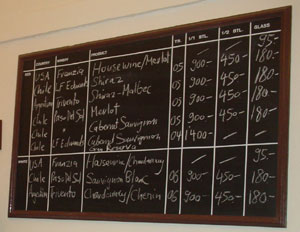 COUNTRY PRODUCT YR. 1/1 BTL. 1/2 BTL. GLASS
USA Franzia Housewine/Merlot / / 95-
Chile LF Edwards Shiraz 05 900- 450- 180-
Argentina Trivento Shiraz-Malbec 05 900- 450- 180-
Chile Paso Del Sol Merlot 05 900- 450- 180-
Chile Cabernet Sauvignon 05 900- 450- 180-
Chile LF Edwards Cabernet Sauvignon 04 1400- / /
Reserva
WHITE USA Franzia Housewine/Chardonnay / / 95-
Chile Paso Del Sol Sauvignon Blanc 06 900- 450- 180-
Argentina Trivento Chardonnay/Chenin 06 900- 450- 180-